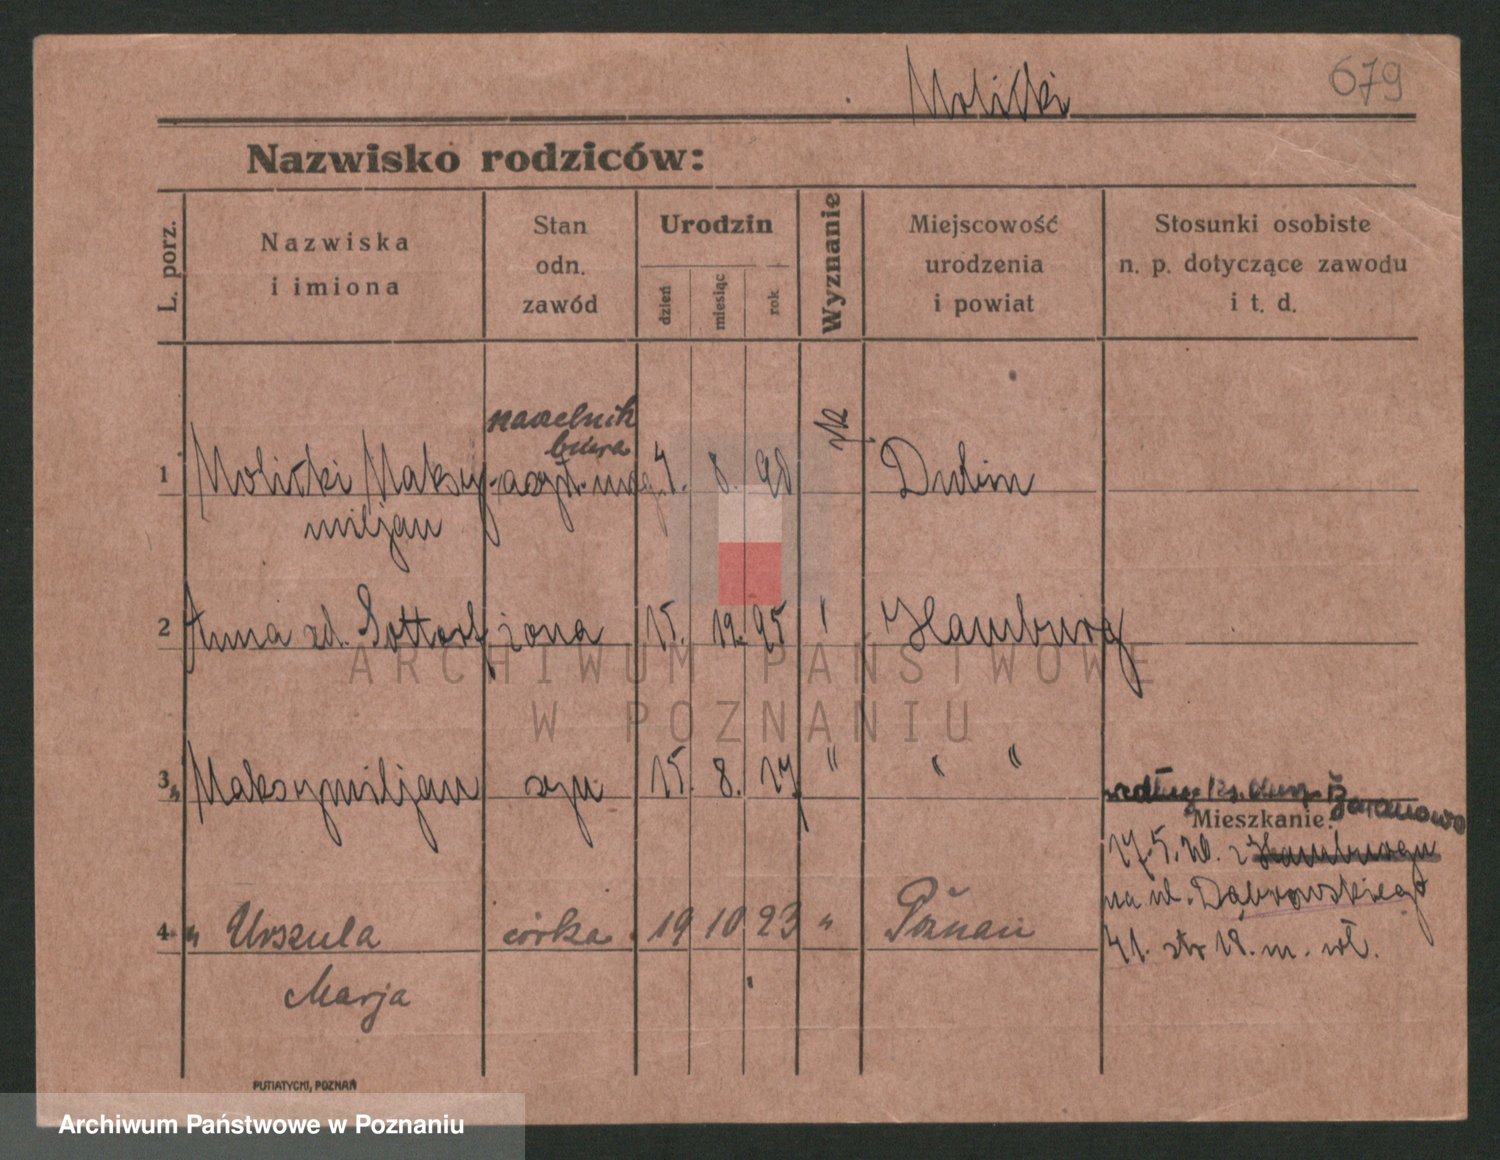 Molicki
679
Nazwisko rodziców:
L. porz.
Nazwiska
i imiona
Stan
odn.
zawód
Urodzin
dzień
miesiąc
rok
Wyznanie
Miejscowość
urodzenia
i powiat
Stosunki osobiste
n. p. dotyczące zawodu
i t. d.
naczelnik
biura
1 Molicki Maksy- 4. 8. 90 rk Dubin
miljan
2 Anna zd. żona 15. 12. 95 " Hamburg
3 " Maksymiljan syn 15. 8. 17 " " "
według Baranowo
Mieszkanie:
17.5.20. z Hamburga
na ul. Dąbrowskiego
41. str 18. m. wł.
4 " Urszula córka 19 10 23 " Poznań
Marja
PUTIATYCKI, POZNAŃ
ARCHIWUM PAŃSTWOWE
W POZNANIU
Archiwum Państwowe w Poznaniu